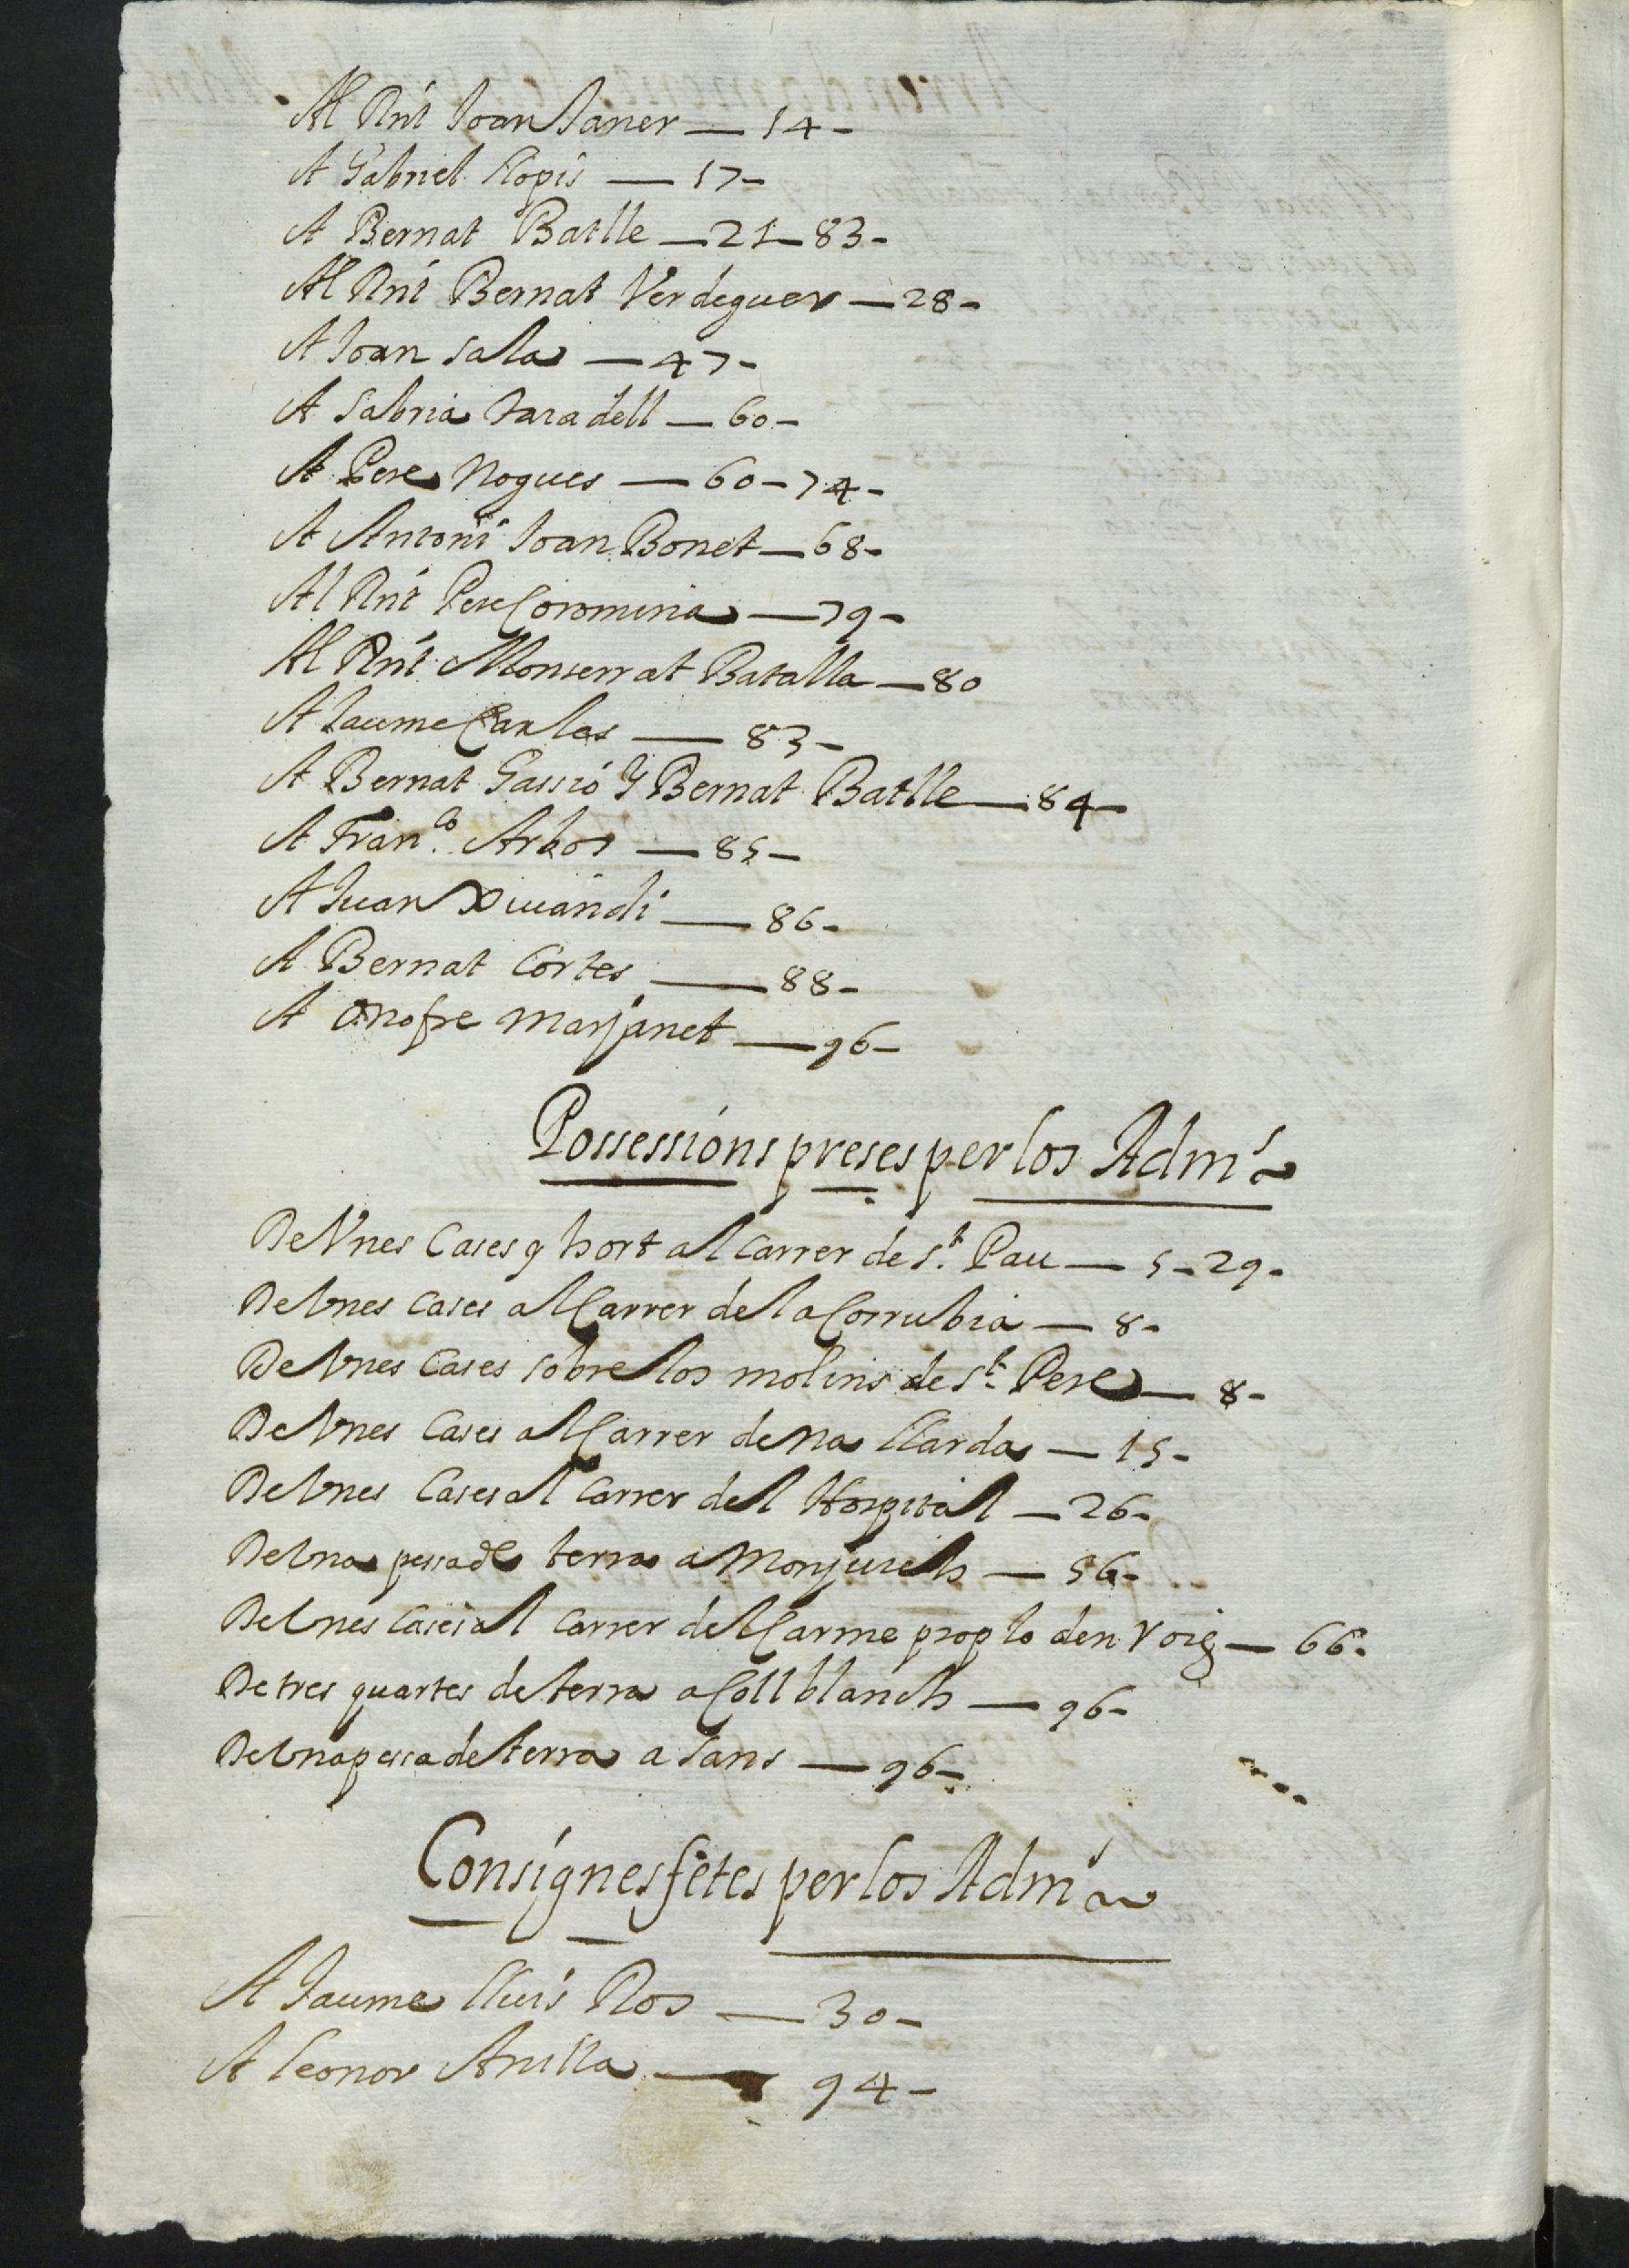 Al Rnt Joan Janer — 14 -
A Gabriel Llopis — 17 -
A Bernat Batlle — 21 - 83 -
Al Rnt Bernat Verdeguer — 28 -
A Joan Sala — 47 -
A Sabria Taradell — 60 -
A Pere Nogues — 60 - 74 -
A Antoni Joan Bonet — 68 -
Al Rnt Pere Coromina — 79 -
Al Rnt Monserrat Batalla — 80
A Jaume Carles — 83 -
A Bernat Gassió y Bernat Batlle — 84 -
A Fran.co Arbos — 85 -
A Juan Xiuandi — 86 -
A Bernat Cortes — 88 -
A Onofre Marjanet — 96 -
Possessions preses per los Adm.s
De Vnes Cases y hort al Carrer de St. Pau — 5 - 29 -
De Vnes Cases al Carrer de la Corrubia — 8 -
De Vnes Cases sobre los molins de St. Pere — 8 -
De Vnes Cases al Carrer de na Llarda — 15 -
De Vnes Cases al Carrer del Hospital — 26 -
De Vna pessa de terra a Monjuich — 56 -
De Vnes Cases al Carrer del Carme prop lo den Roig — 66 -
De tres quartes de terra a Collblanch — 96 -
De Vna pessa de terra a Sans — 96 -
Consignes fetes per los Adm.s
A Jaume Lluis Ros — 30 -
A Leonor — 94 -